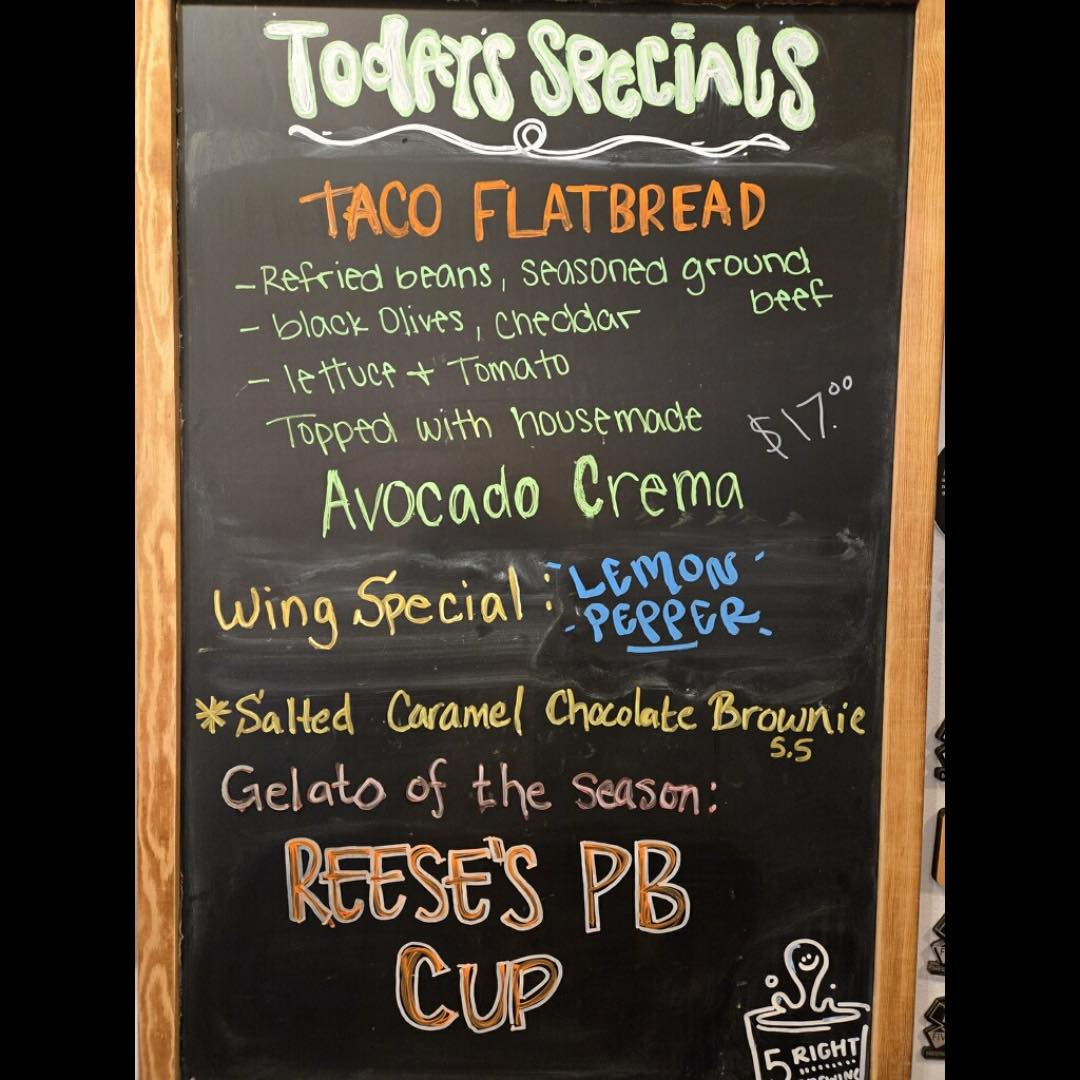 Today's Specials
TACO FLATBREAD
- Refried beans, seasoned ground
beef
- black Olives, cheddar
- lettuce + Tomato
Topped with housemade
$17.00
Avocado Crema
Wing Special: LEMON
PEPPER
*Salted Caramel Chocolate Brownie
5.5
Gelato of the Season:
REESE'S PB
CUP
5 RIGHT